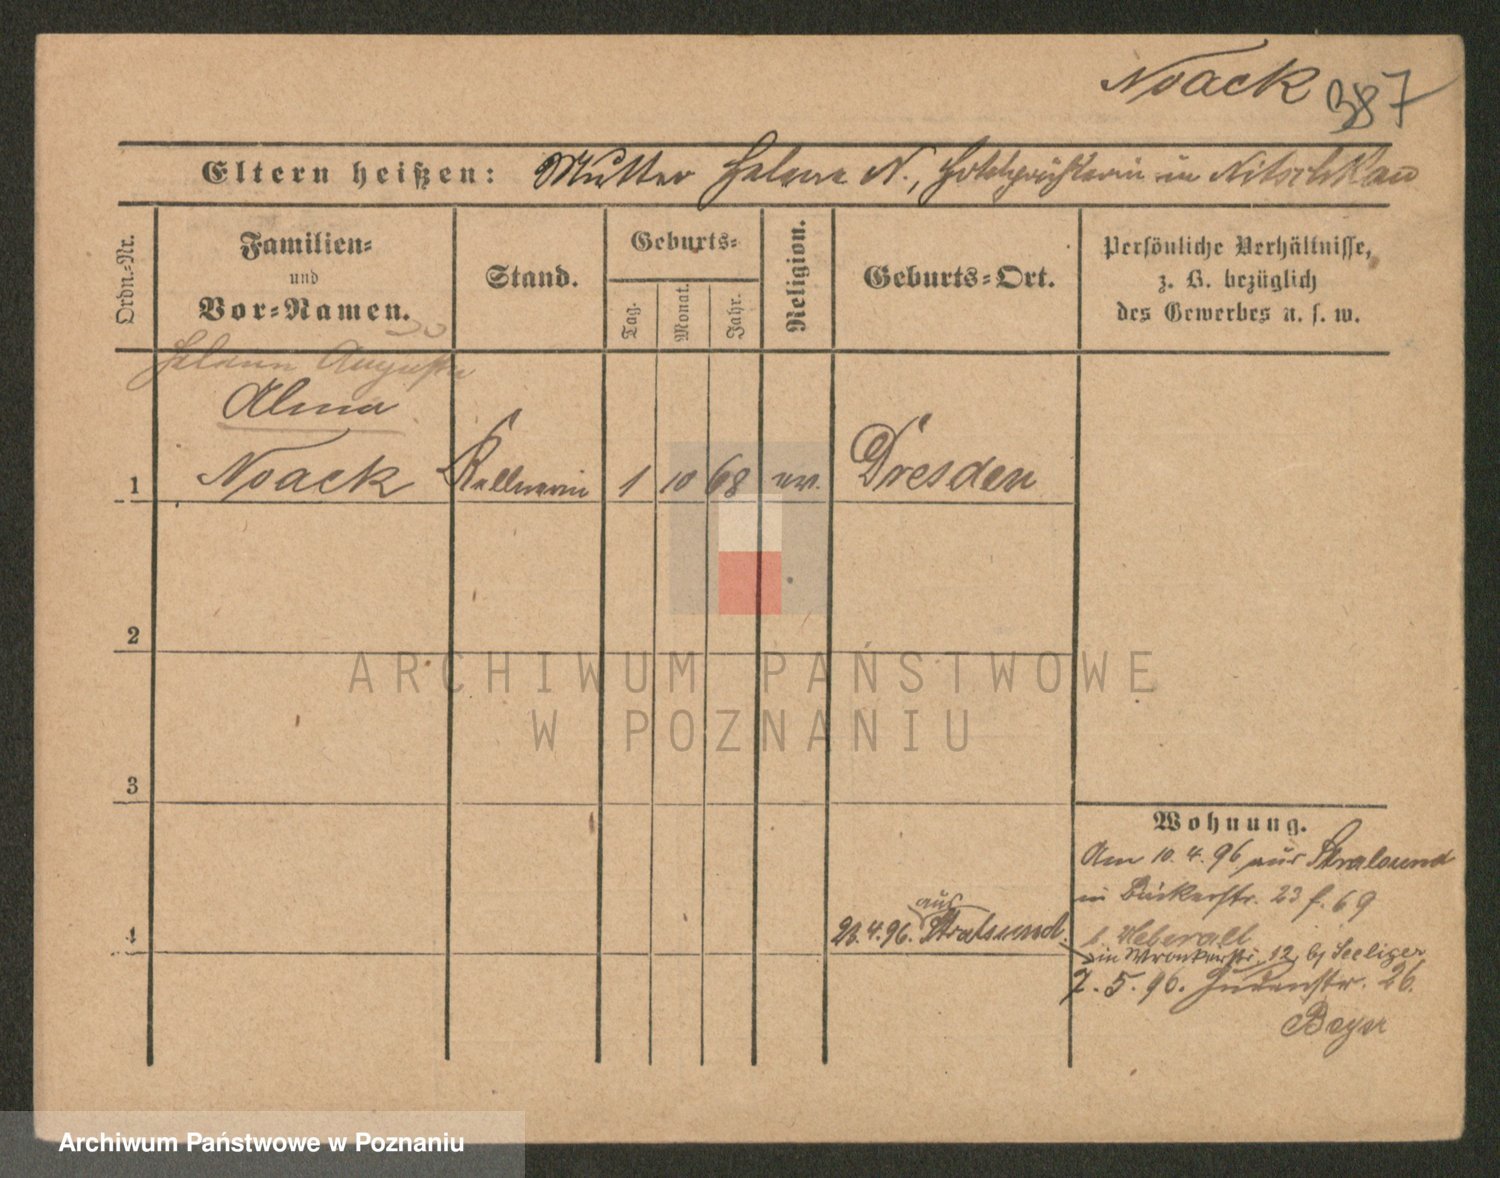 Noack 387
Eltern heißen: Mutter Helene N., in Nitschkau
Ordn.-Nr.
Familien-
und
Vor-Namen.
Stand.
Geburts-
Tag.
Monat.
Jahr.
Religion.
Geburts-Ort.
Persönliche Verhältnisse,
z. B. bezüglich
des Gewerbes u. s. w.
Auguste
Alma
1 Noack Kellnerin 1 10 68 ev. Dresden
2
3
Wohnung.
Am 10.4.96 aus Stralsund
in Bäckerstr. 23
aus
4 23.4.96. Stralsund.
b. Ueberall
in Wronkerstr. 12, b/ Seeliger
7.5.96. Judenstr. 26.
Beyer
ARCHIWUM PAŃSTWOWE
W POZNANIU
Archiwum Państwowe w Poznaniu